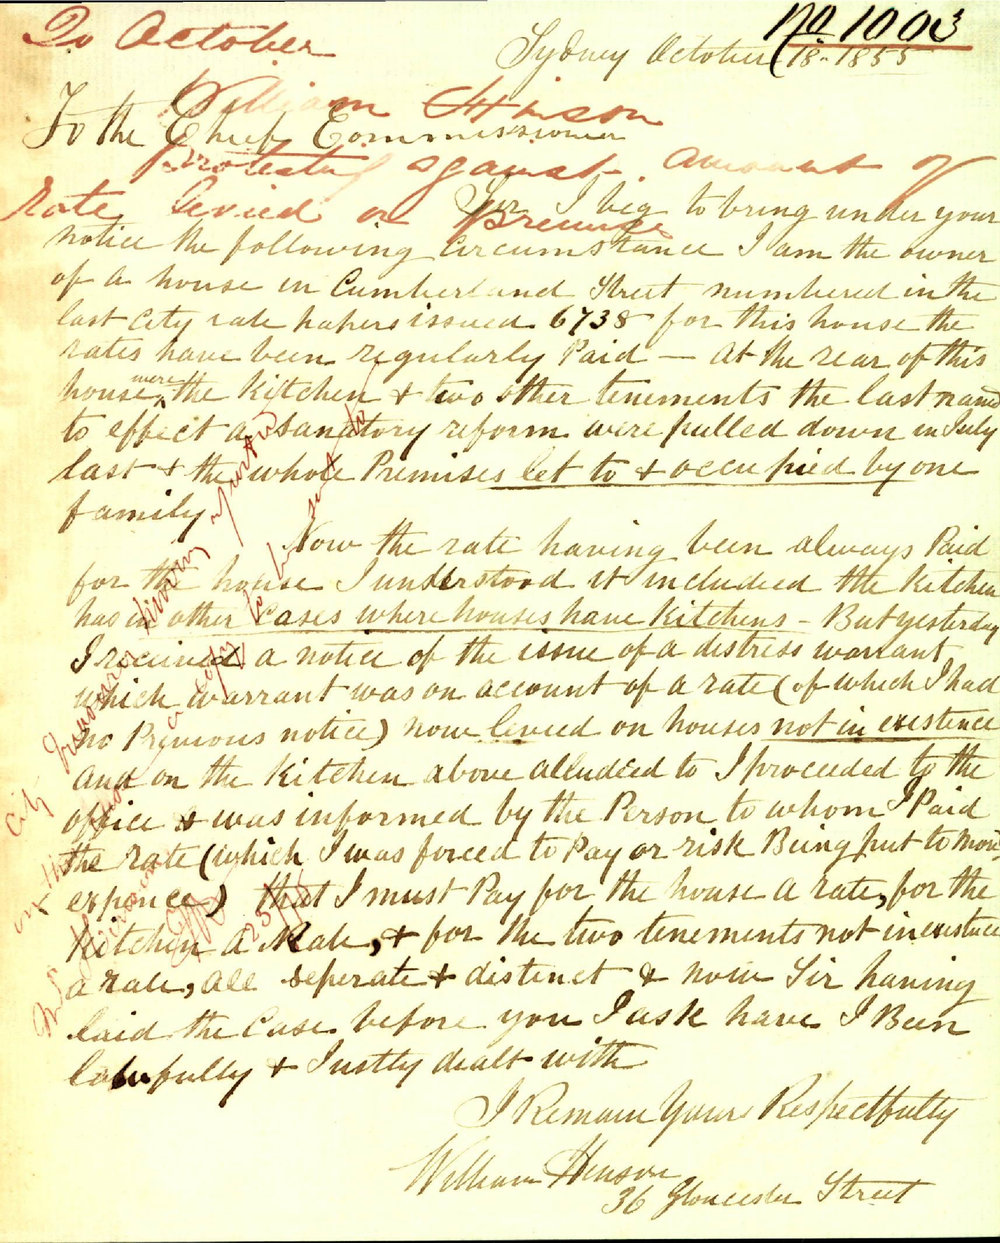 No 1003
20 October
Sydney October 18 - 1855
William Hinson
To the Chief Commissioner
protesting against amount of
rate levied on premises
Sir I beg to bring under your
notice the following Circumstance I am the owner
of a house in Cumberland Street numbered in the
last city rate papers issued 6738 for this house the
rates have been regularly Paid — At the rear of this
house were the Kitchen & two other tenements the last named
to effect a sanatory reform were pulled down in July
last & the whole Premises let to & occupied by one
family
Now the rate having been always Paid
for the house I understood it included the Kitchen
has in other Cases where houses have Kitchens - But yesterday
I received a notice of the issue of a distress warrant
which warrant was on account of a rate (of which I had
no Previous notice) now levied on houses not in existence
And on the Kitchen above alluded to I proceeded to the
office & was informed by the Person to whom I Paid
the rate (which I was forced to Pay or risk Being put to more
expence) that I must Pay for the house a rate, for the
Kitchen a Rate, & for the two tenements not in existence
a rate, all seperate & distinct & now Sir having
laid the Case before you I ask have I Been
lawfully & Justly dealt with
I Remain Yours Respectfully
William Henson
36 Gloucester Street
City
a copy to be sent to